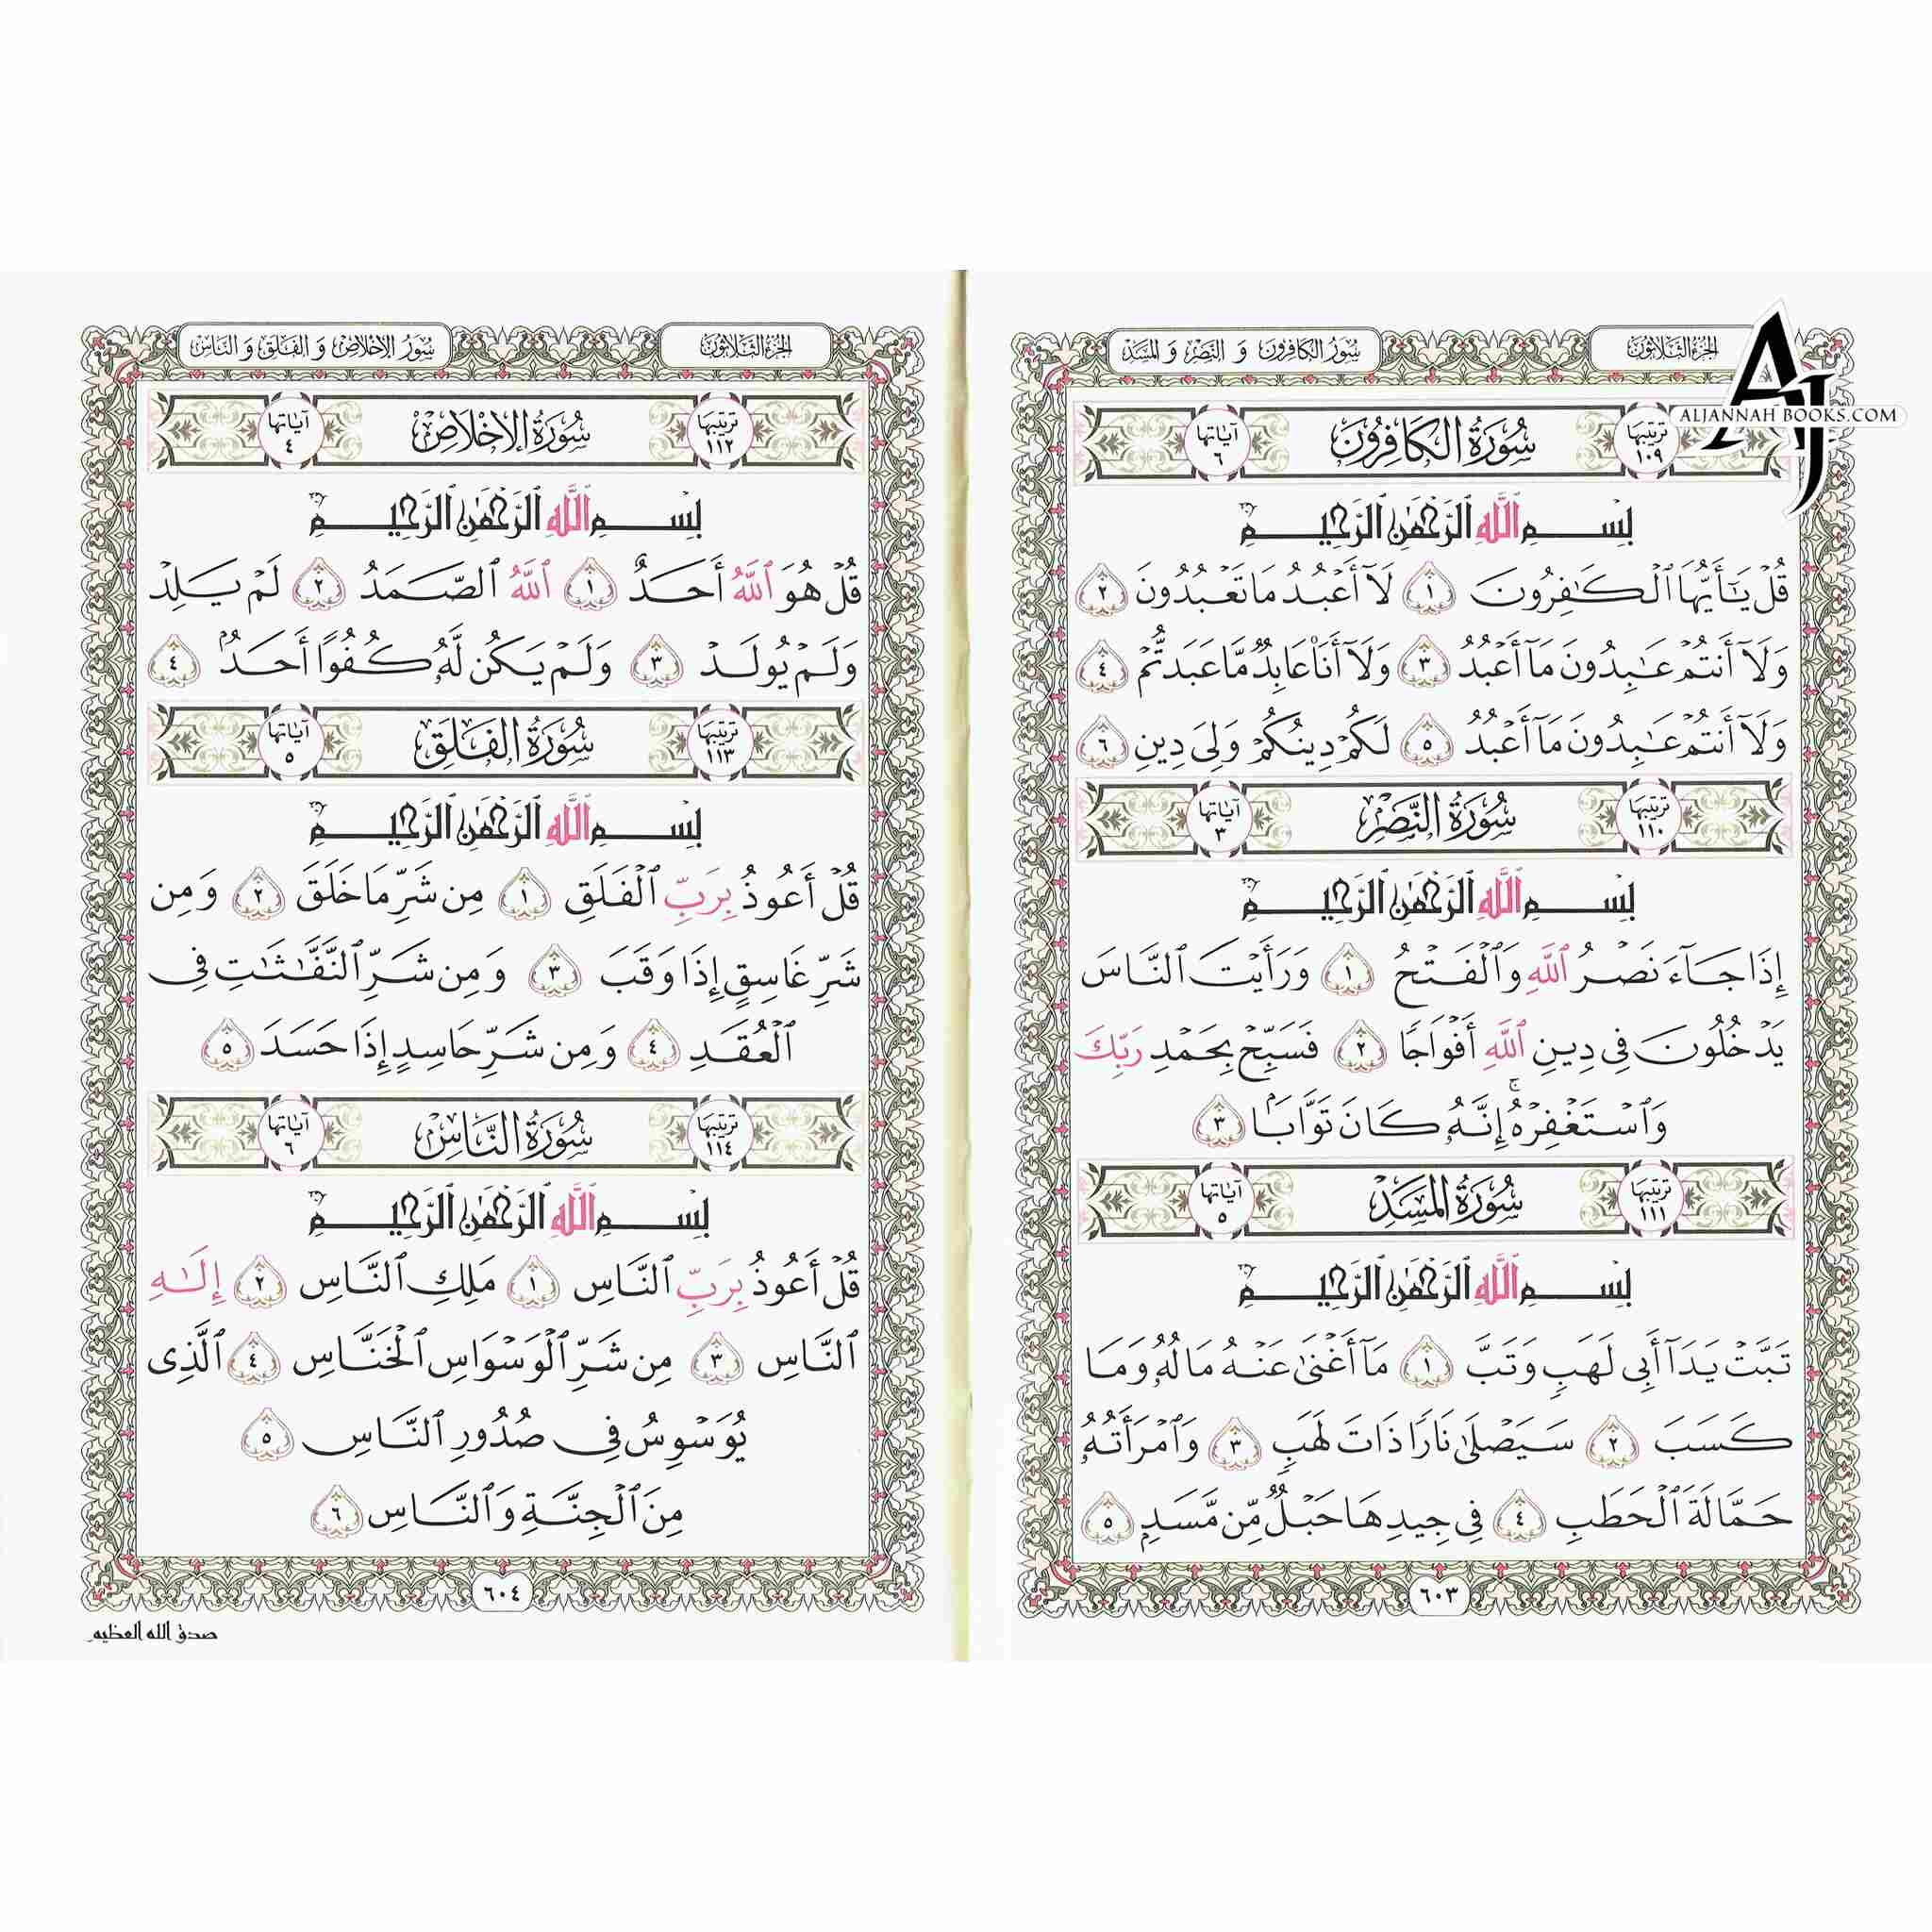 الجزء الثلاثون
سور الكافرون و النصر و المسد
ALJANNAH BOOKS.COM
ترتيبها ١٠٩ سُورَةُ الكَافِرُونَ آياتها ٦
بِسْمِ اللَّهِ الرَّحْمَٰنِ الرَّحِيمِ
قُلْ يَٰٓأَيُّهَا ٱلْكَٰفِرُونَ ١ لَآ أَعْبُدُ مَا تَعْبُدُونَ ٢
وَلَآ أَنتُمْ عَٰبِدُونَ مَآ أَعْبُدُ ٣ وَلَآ أَنَا۠ عَابِدٌ مَّا عَبَدتُّمْ ٤
وَلَآ أَنتُمْ عَٰبِدُونَ مَآ أَعْبُدُ ٥ لَكُمْ دِينُكُمْ وَلِىَ دِينِ ٦
ترتيبها ١١٠ سُورَةُ النَّصْرِ آياتها ٣
بِسْمِ اللَّهِ الرَّحْمَٰنِ الرَّحِيمِ
إِذَا جَآءَ نَصْرُ ٱللَّهِ وَٱلْفَتْحُ ١ وَرَأَيْتَ ٱلنَّاسَ
يَدْخُلُونَ فِى دِينِ ٱللَّهِ أَفْوَاجًا ٢ فَسَبِّحْ بِحَمْدِ رَبِّكَ
وَٱسْتَغْفِرْهُ ۚ إِنَّهُۥ كَانَ تَوَّابًۢا ٣
ترتيبها ١١١ سُورَةُ المَسَدِ آياتها ٥
بِسْمِ اللَّهِ الرَّحْمَٰنِ الرَّحِيمِ
تَبَّتْ يَدَآ أَبِى لَهَبٍ وَتَبَّ ١ مَآ أَغْنَىٰ عَنْهُ مَالُهُۥ وَمَا
كَسَبَ ٢ سَيَصْلَىٰ نَارًا ذَاتَ لَهَبٍ ٣ وَٱمْرَأَتُهُۥ
حَمَّالَةَ ٱلْحَطَبِ ٤ فِى جِيدِهَا حَبْلٌ مِّن مَّسَدٍۭ ٥
٦٠٣
الجزء الثلاثون
سور الإخلاص و الفلق و الناس
ترتيبها ١١٢ سُورَةُ الإِخْلَاصِ آياتها ٤
بِسْمِ اللَّهِ الرَّحْمَٰنِ الرَّحِيمِ
قُلْ هُوَ ٱللَّهُ أَحَدٌ ١ ٱللَّهُ ٱلصَّمَدُ ٢ لَمْ يَلِدْ
وَلَمْ يُولَدْ ٣ وَلَمْ يَكُن لَّهُۥ كُفُوًا أَحَدٌۢ ٤
ترتيبها ١١٣ سُورَةُ الفَلَقِ آياتها ٥
بِسْمِ اللَّهِ الرَّحْمَٰنِ الرَّحِيمِ
قُلْ أَعُوذُ بِرَبِّ ٱلْفَلَقِ ١ مِن شَرِّ مَا خَلَقَ ٢ وَمِن
شَرِّ غَاسِقٍ إِذَا وَقَبَ ٣ وَمِن شَرِّ ٱلنَّفَّٰثَٰتِ فِى
ٱلْعُقَدِ ٤ وَمِن شَرِّ حَاسِدٍ إِذَا حَسَدَ ٥
ترتيبها ١١٤ سُورَةُ النَّاسِ آياتها ٦
بِسْمِ اللَّهِ الرَّحْمَٰنِ الرَّحِيمِ
قُلْ أَعُوذُ بِرَبِّ ٱلنَّاسِ ١ مَلِكِ ٱلنَّاسِ ٢ إِلَٰهِ
ٱلنَّاسِ ٣ مِن شَرِّ ٱلْوَسْوَاسِ ٱلْخَنَّاسِ ٤ ٱلَّذِى
يُوَسْوِسُ فِى صُدُورِ ٱلنَّاسِ ٥
مِنَ ٱلْجِنَّةِ وَٱلنَّاسِ ٦
٦٠٤
صدق الله العظيم